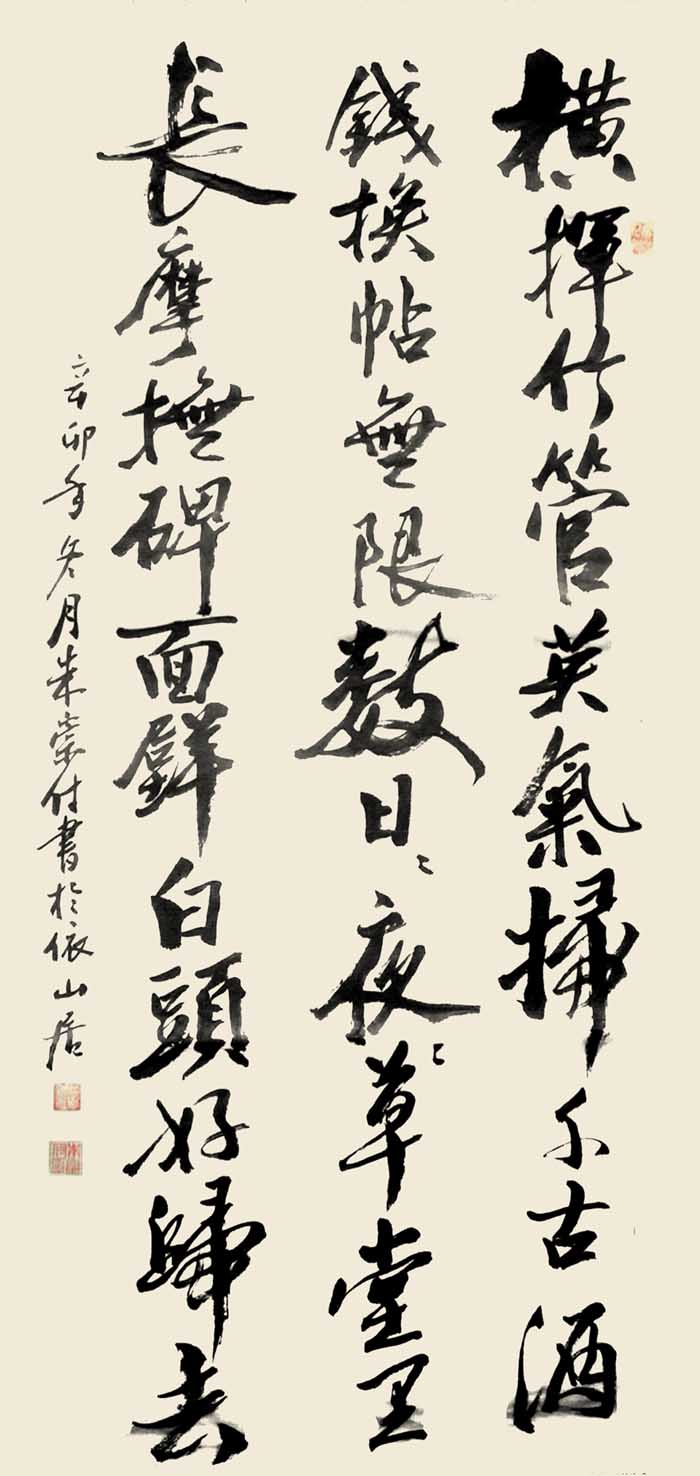 橫揮竹管英氣掃千古酒
錢換帖無限數日〻夜〻草堂里
長摩撫碑面鮮白頭好歸去
辛卯年冬月朱崇付書於依山居